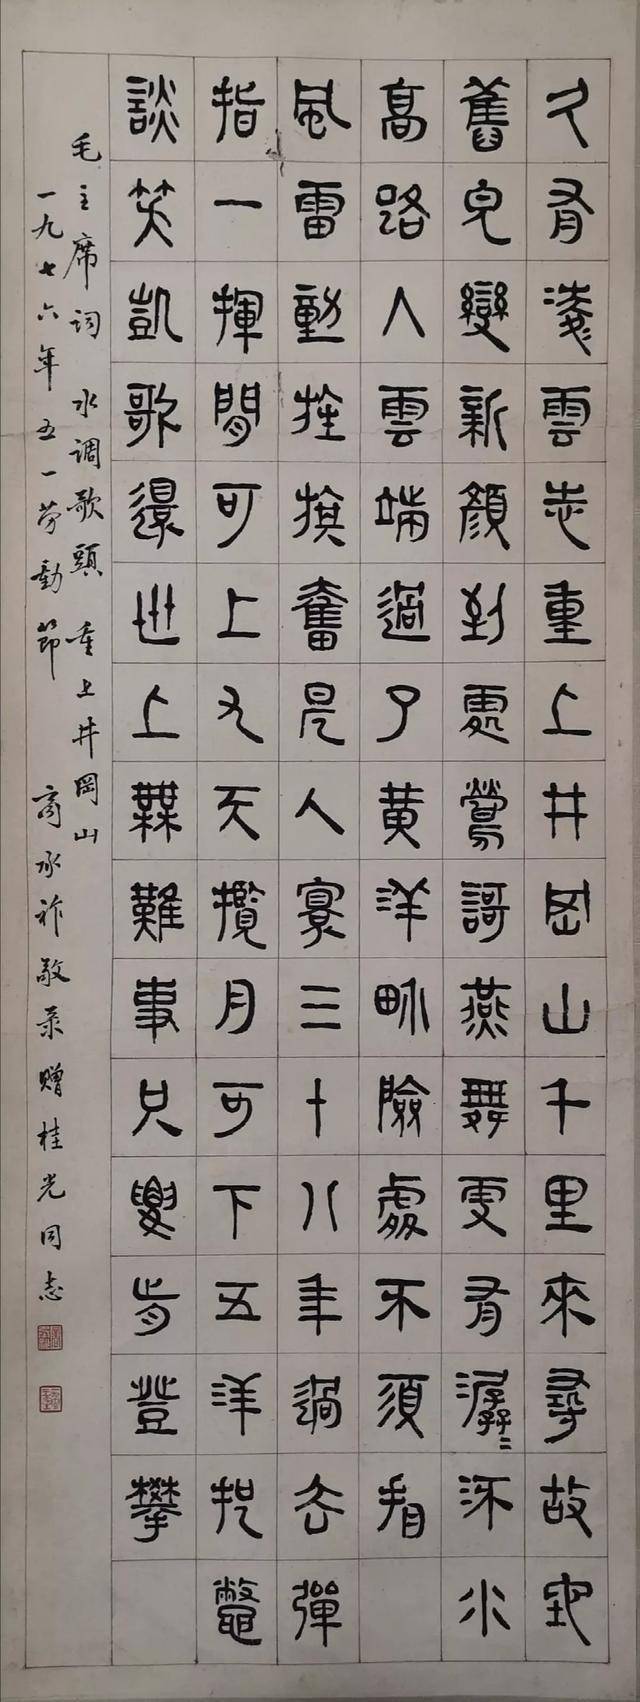 久有凌雲志重上井岡山千里來尋故地
舊皃變新顏到處鶯歌燕舞更有潺〻流水
高路入雲端過了黃洋界險處不須看
風雷動旌旗奮是人寰三十八年過去彈
指一揮間可上九天攬月可下五洋捉鱉
談笑凱歌還世上無難事只要肯登攀
毛主席词 水调歌頭 重上井岡山
一九七六年五一劳動節 商承祚敬录赠桂光同志